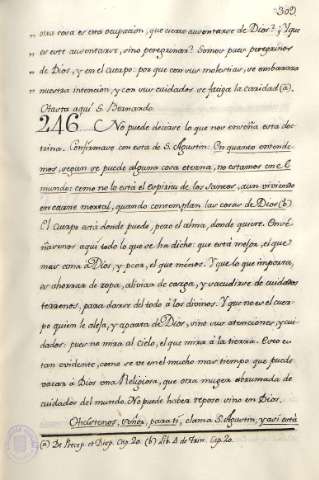 302
„ otra cosa es esta ocupación, que cierto ausentarse de Dios? ¿Y que
„ es este ausentarse, sino peregrinar? Somos pues peregrinos
„ de Dios, y en el cuerpo: por que con sus molestias, se embaraza
„ nuestra intención, y con sus cuidados se fatiga la caridad (a).
Hasta aquí S. Bernardo.
246. No puede decirse lo que nos enseña esta doc
trina. Confirmase con esta de S. Agustin: En quanto entende
mos, segun se puede alguna cosa eterna, no estamos en el
mundo: como no lo está el espiritu de los Santos, aun viviendo
en carne mortal, quando contemplan las cosas de Dios (b)
El cuerpo está donde puede, pero el alma, donde quiere. Ense
ñarenos aquí todo lo que se ha dicho: que está mejor, el que
mas ama à Dios, y peor, el que ménos. Y que lo que importa,
es ahorrar de ropa, aliviar de carga, y sacudirse de cuidados
terrenos, para darse del todo à los divinos. Y que no es el cuer
po quien le aleja, y aparta de Dios, sino sus atenciones, y cui
dados: pues no mira al cielo, el que mira à la tierra. Esto es
tan evidente, como se ve en el mucho mas tiempo que puede
vacar à Dios una Religiosa, que otra muger abrumada de
cuidados del mundo. No puede haber reposo sino en Dios.
Hicistenos, Señor, para tí, clama S. Agustin, y así está
(a) De Precep. et Disp. Cap. 20. (b) Lib. 4 de Trin. Cap. 20.